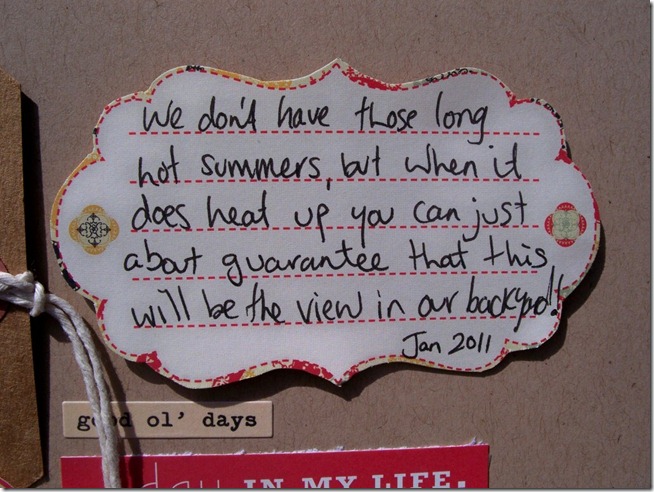 We don't have those long
hot summers, but when it
does heat up you can just
about guarantee that this
will be the view in our backyard!
Jan 2011
good ol' days
day IN MY LIFE.